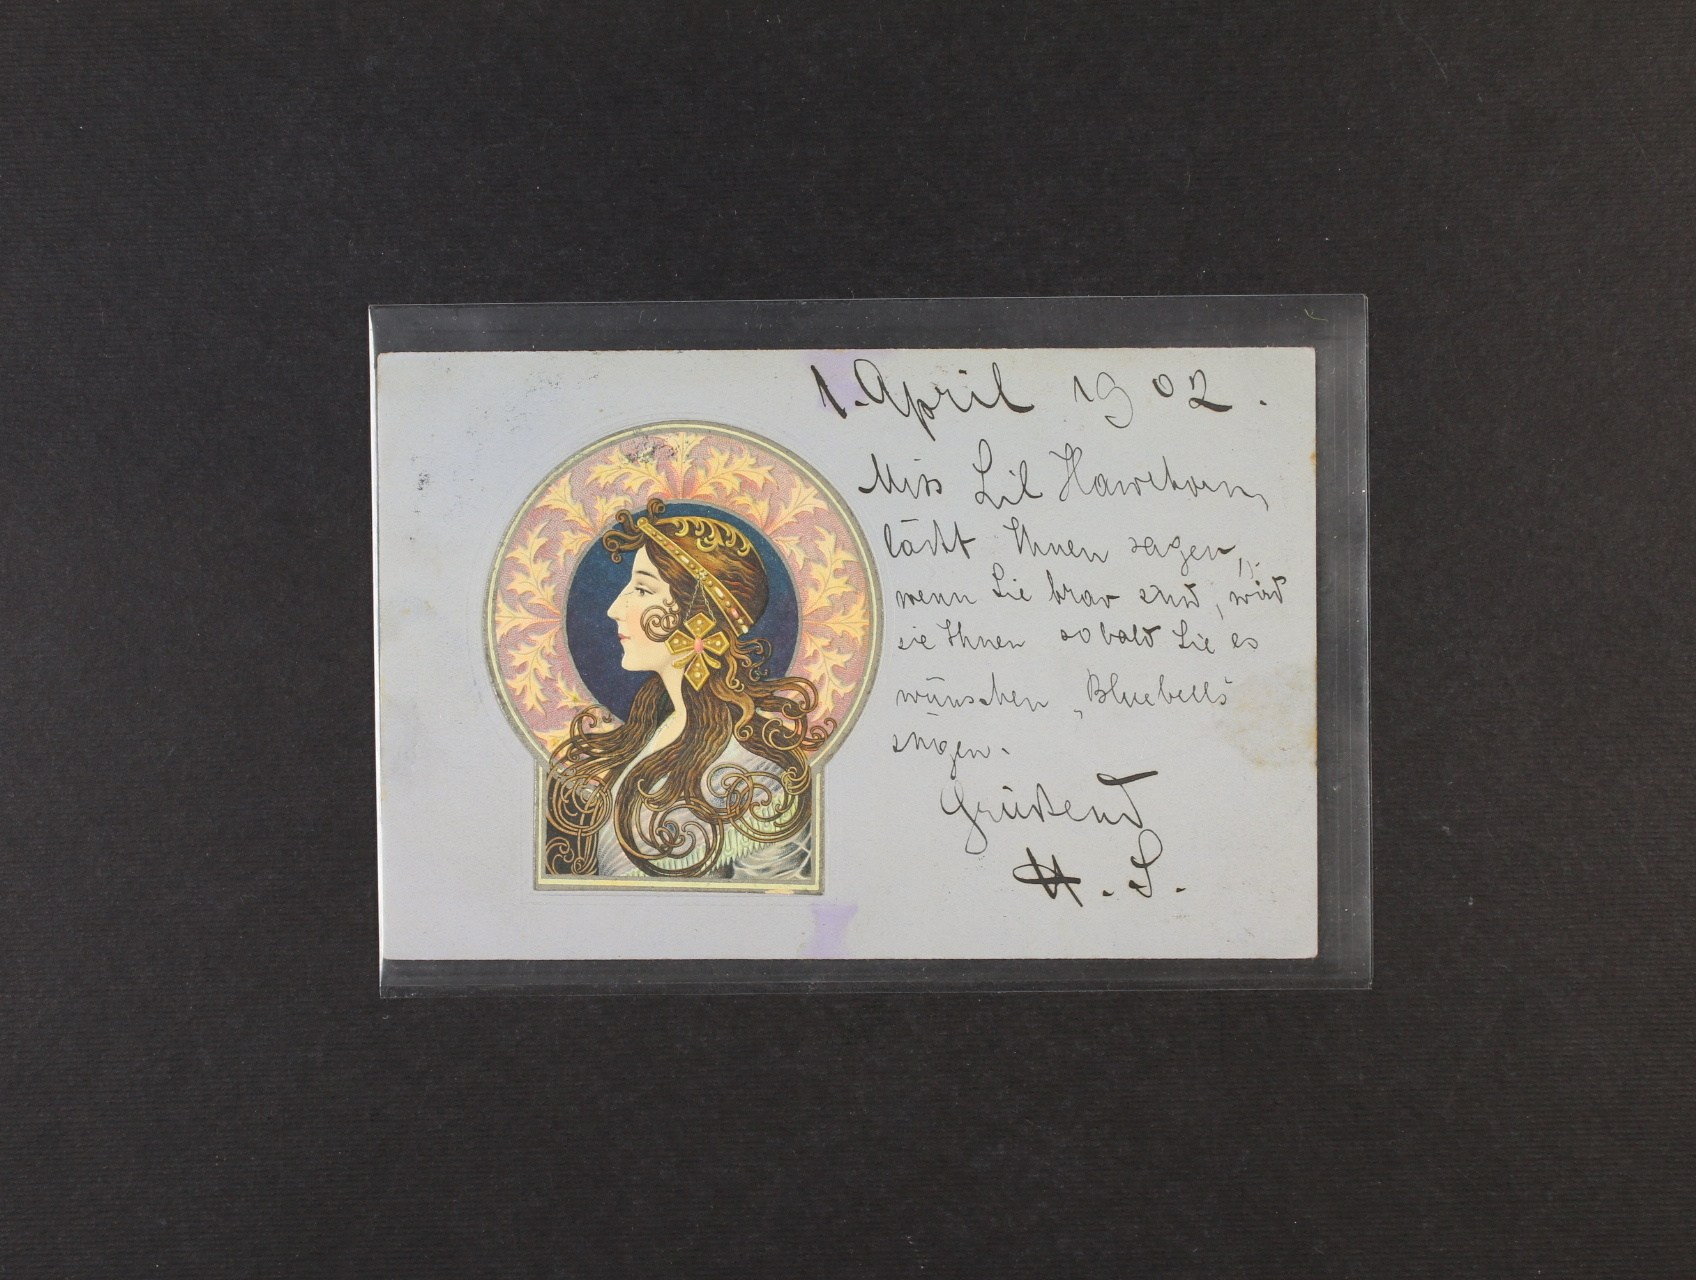 1. April 1902.
Miss Lil Hawthorn,
läßt Ihnen sagen,
wenn Sie brav sind, wird
sie Ihnen sobald Sie es
wünschen „Bluebells“
singen.
Grüßend
H. S.